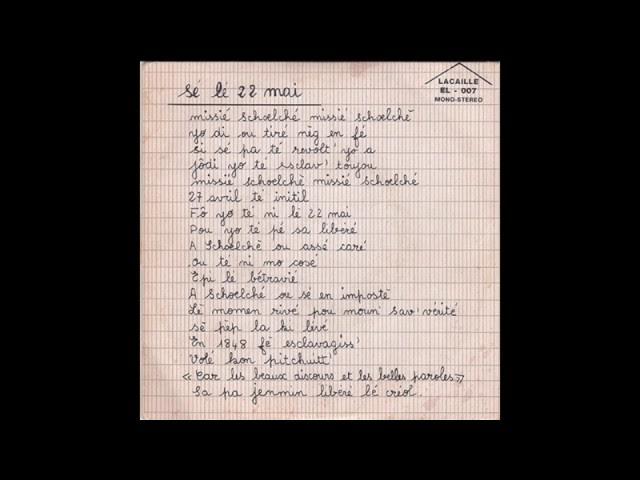 LACAILLE
EL - 007
MONO-STEREO
sé lé 22 mai
missié schœlché missié schœlchè
yo di ou tiré nèg en fé
si sé pa té revolt' yo a
jòdi yo té esclav' toujou
missié schoelchè missié schoelché
27 avril té initil
Fô yo té ni lè 22 mai
Pou yo té pé sa libéré
A Schœlchè ou assé caré
Ou té ni mo cosé
Epi lé bétravié
A Schoelché ou sé en impostè
Lè momen rivé pou moun' sav' vérité
sé pèp la ki lévé
En 1848 fè esclavagiss'
Volé kon pitchuitt'
« Car les beaux discours et les belles paroles »
Sa pa jenmin libéré lé créol.